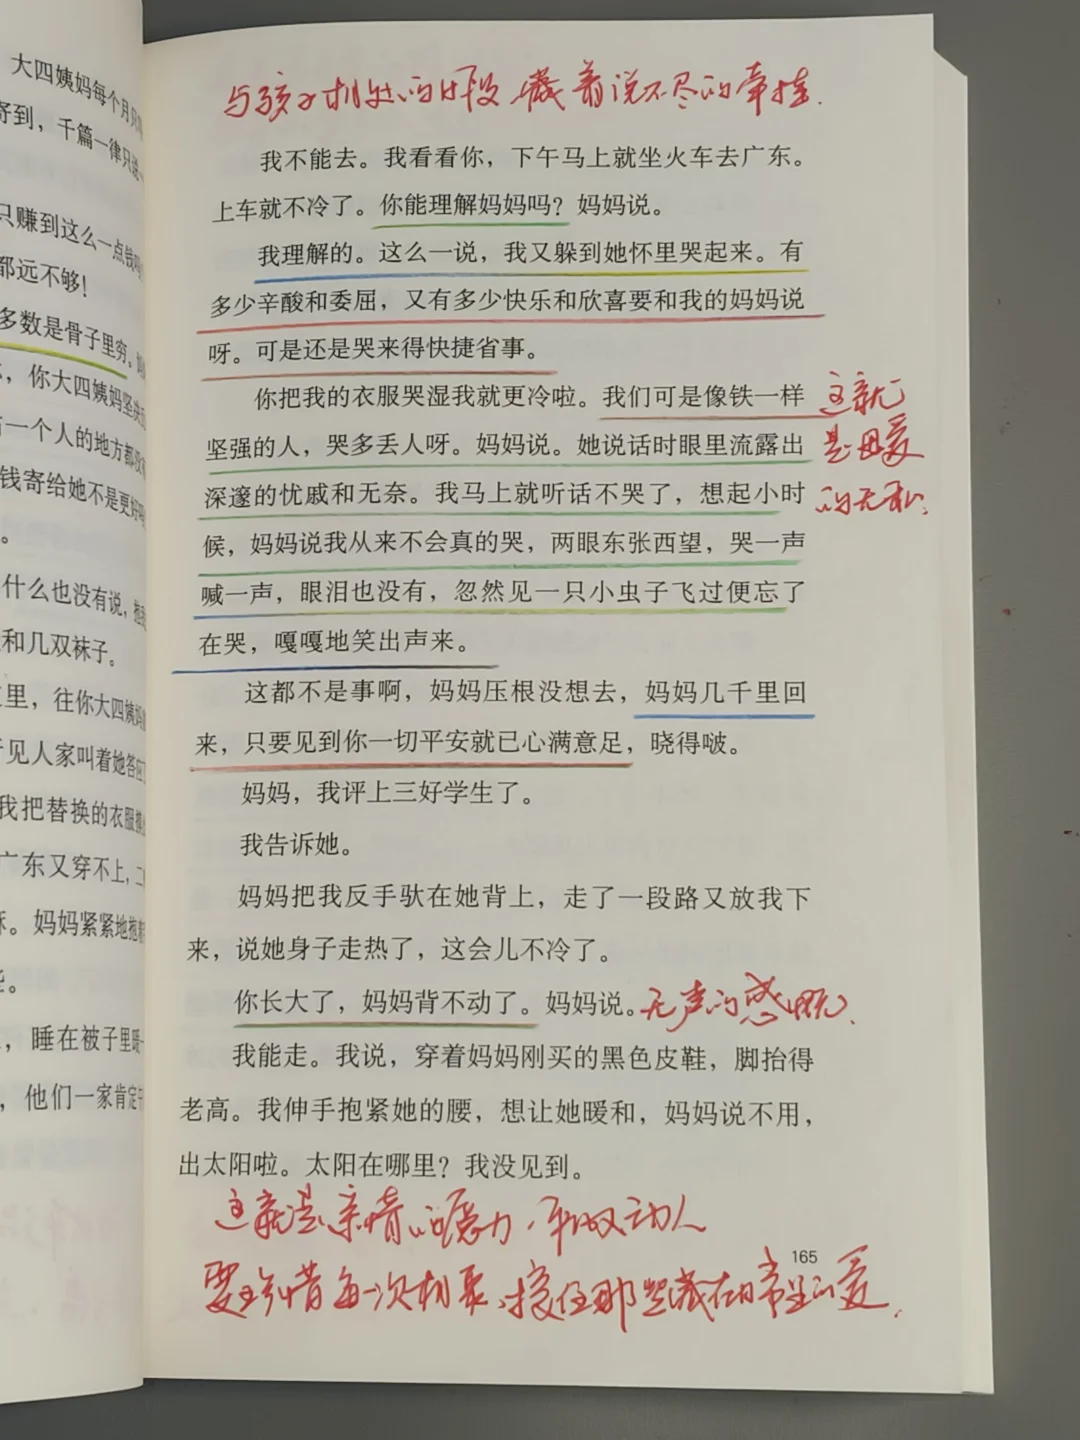 大四姨妈每个月只
寄到，千篇一律只说
只赚到这么一点钱
都远不够！
多数是骨子里穷。
，你大四姨妈坚决
一个人的地方都没
钱寄给她不是更好
。
什么也没有说，
和几双袜子。
里，往你大四姨妈
见人家叫着她答应
我把替换的衣服
广东又穿不上，二
。妈妈紧紧地抱着
。
，睡在被子里暖一
，他们一家肯定
与孩子相处的时段，藏着说不尽的牵挂.
我不能去。我看看你，下午马上就坐火车去广东。
上车就不冷了。你能理解妈妈吗？妈妈说。
我理解的。这么一说，我又躲到她怀里哭起来。有
多少辛酸和委屈，又有多少快乐和欣喜要和我的妈妈说
呀。可是还是哭来得快捷省事。
你把我的衣服哭湿我就更冷啦。我们可是像铁一样
坚强的人，哭多丢人呀。妈妈说。她说话时眼里流露出
深邃的忧戚和无奈。我马上就听话不哭了，想起小时
候，妈妈说我从来不会真的哭，两眼东张西望，哭一声
喊一声，眼泪也没有，忽然见一只小虫子飞过便忘了
在哭，嘎嘎地笑出声来。
这就
是母爱
的无私.
这都不是事啊，妈妈压根没想去，妈妈几千里回
来，只要见到你一切平安就已心满意足，晓得啵。
妈妈，我评上三好学生了。
我告诉她。
妈妈把我反手驮在她背上，走了一段路又放我下
来，说她身子走热了，这会儿不冷了。
你长大了，妈妈背不动了。妈妈说。无声的感慨.
我能走。我说，穿着妈妈刚买的黑色皮鞋，脚抬得
老高。我伸手抱紧她的腰，想让她暖和，妈妈说不用，
出太阳啦。太阳在哪里？我没见到。
这就是亲情的魔力，平凡又动人
165
要珍惜每一次相聚，接住那些藏在日常里的爱.